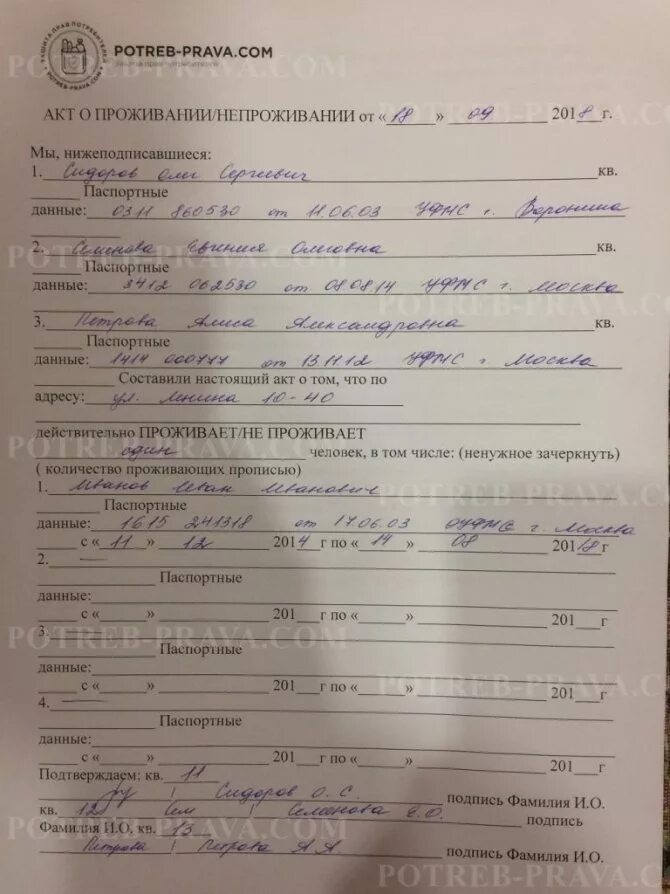 ЗАЩИТА ПРАВ ПОТРЕБИТЕЛЕЙ
POTREB-PRAVA.COM
POTREB-PRAVA.COM
POTREB-PRAVA.COM
POTREB-PRAVA.C
АКТ О ПРОЖИВАНИИ/НЕПРОЖИВАНИИ от « 18 » 09 2018 г.
Мы, нижеподписавшиеся:
1. Сидоров Олег Сергиевич кв.
Паспортные
данные: 0311 860530 от 11.06.03 УФМС г. Воронина
2. Семенова Евгения Олеговна кв.
Паспортные
POTREB-PRAVA.COM
данные: 3412 062530 от 08.08.14 УФМС г. Москва
POTREB-PRAVA.C
3. Петрова Алиса Александровна кв.
Паспортные
данные: 1414 000777 от 13.11.12 УФМС г. Москва
Составили настоящий акт о том, что по
адресу: ул. Ленина 10-40
действительно ПРОЖИВАЕТ/НЕ ПРОЖИВАЕТ
POTREB-PRAVA.COM
один человек, в том числе: (ненужное зачеркнуть)
( количество проживающих прописью)
1. Иванов Иван Иванович
POTREB-PRAVA.C
Паспортные
данные: 1615 241318 от 17.06.03 ОУФМС г. Москва
с « 11 » 12 2014 г по « 14 » 08 2018 г
2.
Паспортные
данные:
с « » 201 г по « » 201 г
3.
POTREB-PRAVA.COM
Паспортные
данные:
с « » 201 г по « » 201 г
POTREB-PRAVA.C
4.
Паспортные
данные:
с « » 201 г по « » 201 г
Подтверждаем: кв. 11
Сидоров О. С. подпись Фамилия И.О.
кв. 12 Сем Семенова Е.О. подпись
POTREB-PRAVA.COM
Фамилия И.О. кв. 13
Петрова Петрова А.А. подпись Фамилия И.О.
POTREB-PRAVA.C